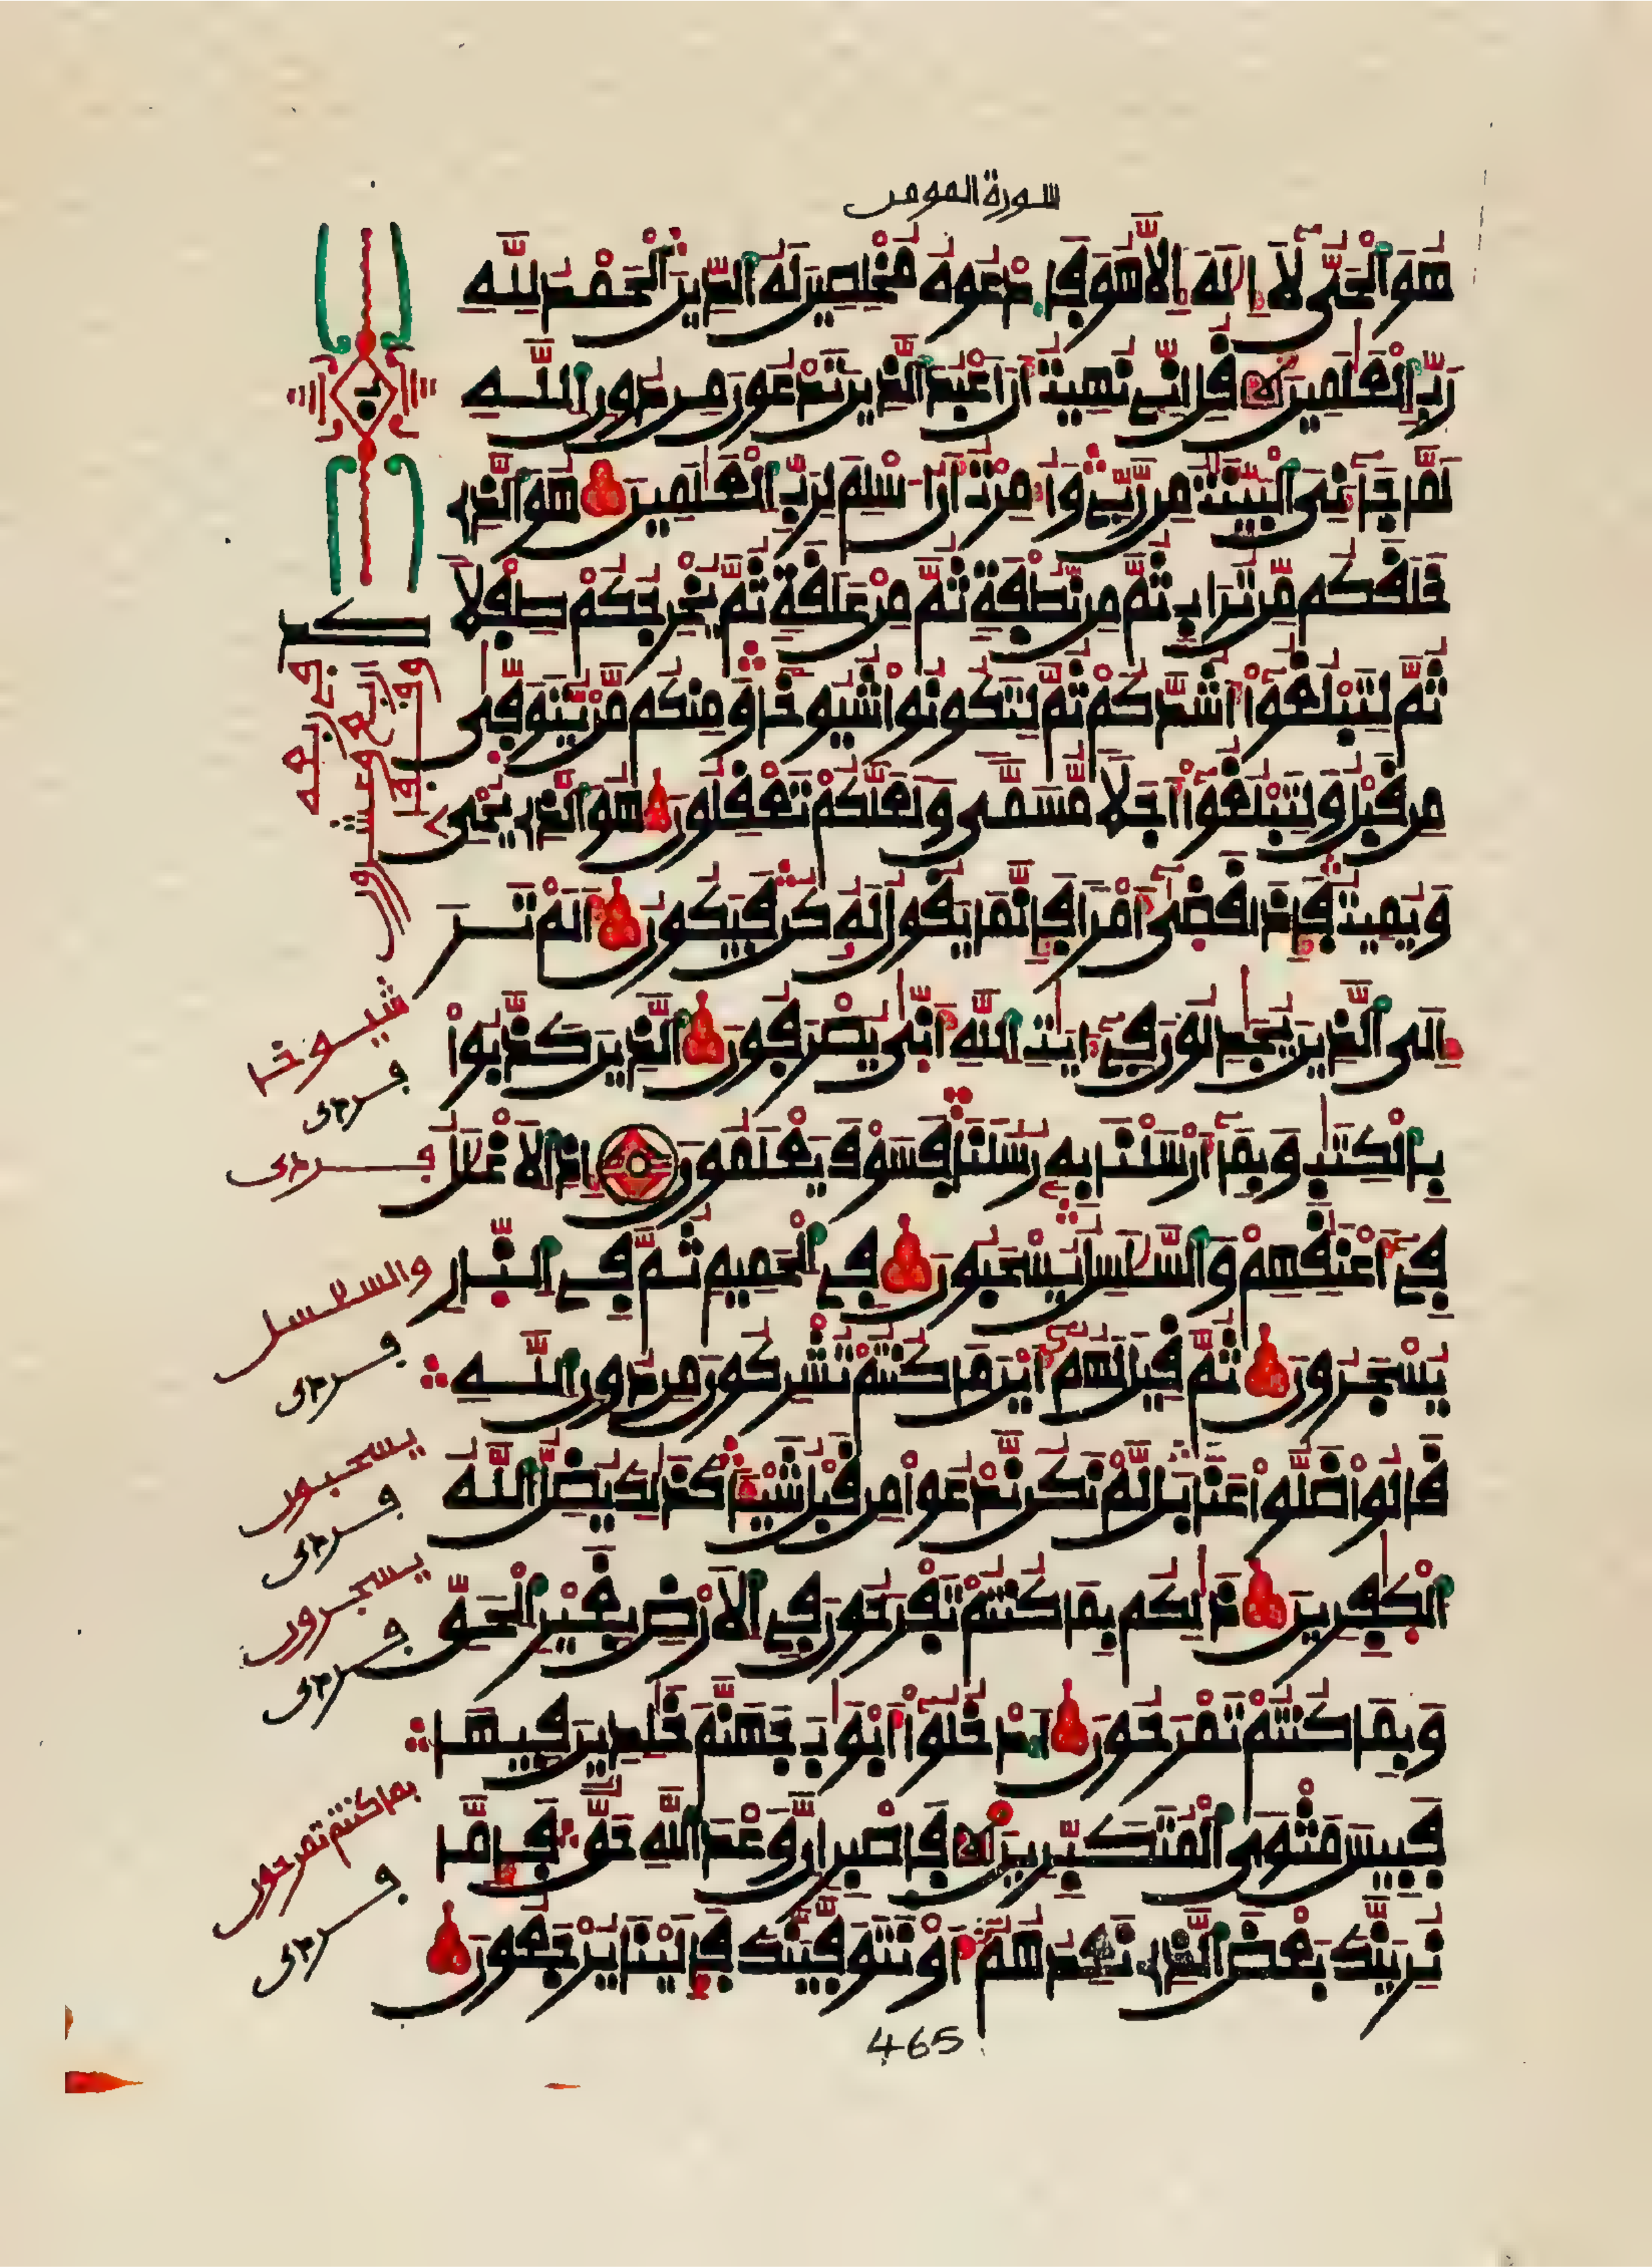 سورة المومن
هُوَ اَلْحَىُّ لَآ إِلَٰهَ إِلَّا هُوَ فَادْعُوهُ مُخْلِصِينَ لَهُ اُلدِّينَ اَلْحَمْدُ لِلَّهِ
رَبِّ اِلْعَٰلَمِينَ قُلِ انِّى نُهِيتُ أَنَ اَعْبُدَ اَلذِينَ تَدْعُونَ مِن دُونِ اِللَّهِ
لَمَّا جَآءَنِىَ اَلْبَيِّنَٰتُ مِن رَّبِّى وَأُمِرْتُ أَنُ اسْلِمَ لِرَبِّ اِلْعَٰلَمِينَ هُوَ اَلذِى
خَلَقَكُم مِّن تُرَابٍ ثُمَّ مِن نُّطْفَةٍ ثُمَّ مِنْ عَلَقَةٍ ثُمَّ يُخْرِجُكُمْ طِفْلًا
ثُمَّ لِتَبْلُغُوٓاْ أَشُدَّكُمْ ثُمَّ لِتَكُونُواْ شُيُوخًا وَمِنكُم مَّنْ يُّتَوَفَّىٰ
مِن قَبْلُ وَلِتَبْلُغُوٓاْ أَجَلًا مُّسَمًّى وَلَعَلَّكُمْ تَعْقِلُونَ هُوَ اَلذِى يُحْىِۦ
وَيُمِيتُ فَإِذَا قَضَىٰٓ أَمْرًا فَإِنَّمَا يَقُولُ لَهُۥ كُن فَيَكُونُ أَلَمْ تَرَ
إِلَى اَلذِينَ يُجَٰدِلُونَ فِىٓ ءَايَٰتِ اِللَّهِ أَنَّىٰ يُصْرَفُونَ اَلذِينَ كَذَّبُواْ
بِالْكِتَٰبِ وَبِمَآ أَرْسَلْنَا بِهِۦ رُسُلَنَا فَسَوْفَ يَعْلَمُونَ إِذِ اِلَاغْلَٰلُ
فِىٓ أَعْنَٰقِهِمْ وَالسَّلَٰسِلُ يُسْحَبُونَ فِى اِلْحَمِيمِ ثُمَّ فِى اِلنَّارِ
يُسْجَرُونَ ثُمَّ قِيلَ لَهُمُۥٓ أَيْنَ مَا كُنتُمْ تُشْرِكُونَ مِن دُونِ اِللَّهِ
قَالُواْ ضَلُّواْ عَنَّا بَل لَّمْ نَكُن نَّدْعُواْ مِن قَبْلُ شَيْـًٔا كَذَٰلِكَ يُضِلُّ اُللَّهُ
اُلْكٰفِرِينَ ذَٰلِكُم بِمَا كُنتُمْ تَفْرَحُونَ فِى اِلَارْضِ بِغَيْرِ اِلْحَقِّ
وَبِمَا كُنتُمْ تَمْرَحُونَ اَدْخُلُوٓاْ أَبْوَٰبَ جَهَنَّمَ خَٰلِدِينَ فِيهَا
فَبِيسَ مَثْوَى اَلْمُتَكَبِّرِينَ فَاصْبِرِ انَّ وَعْدَ اَللَّهِ حَقٌّ فَإِمَّا
نُرِيَنَّكَ بَعْضَ اَلذِى نَعِدُهُمُۥٓ أَوْ نَتَوَفَّيَنَّكَ فَإِلَيْنَا يُرْجَعُونَ
شيوخا
والسلسل
يسحبون
يسجرون
بما كنتم تمرحون
465